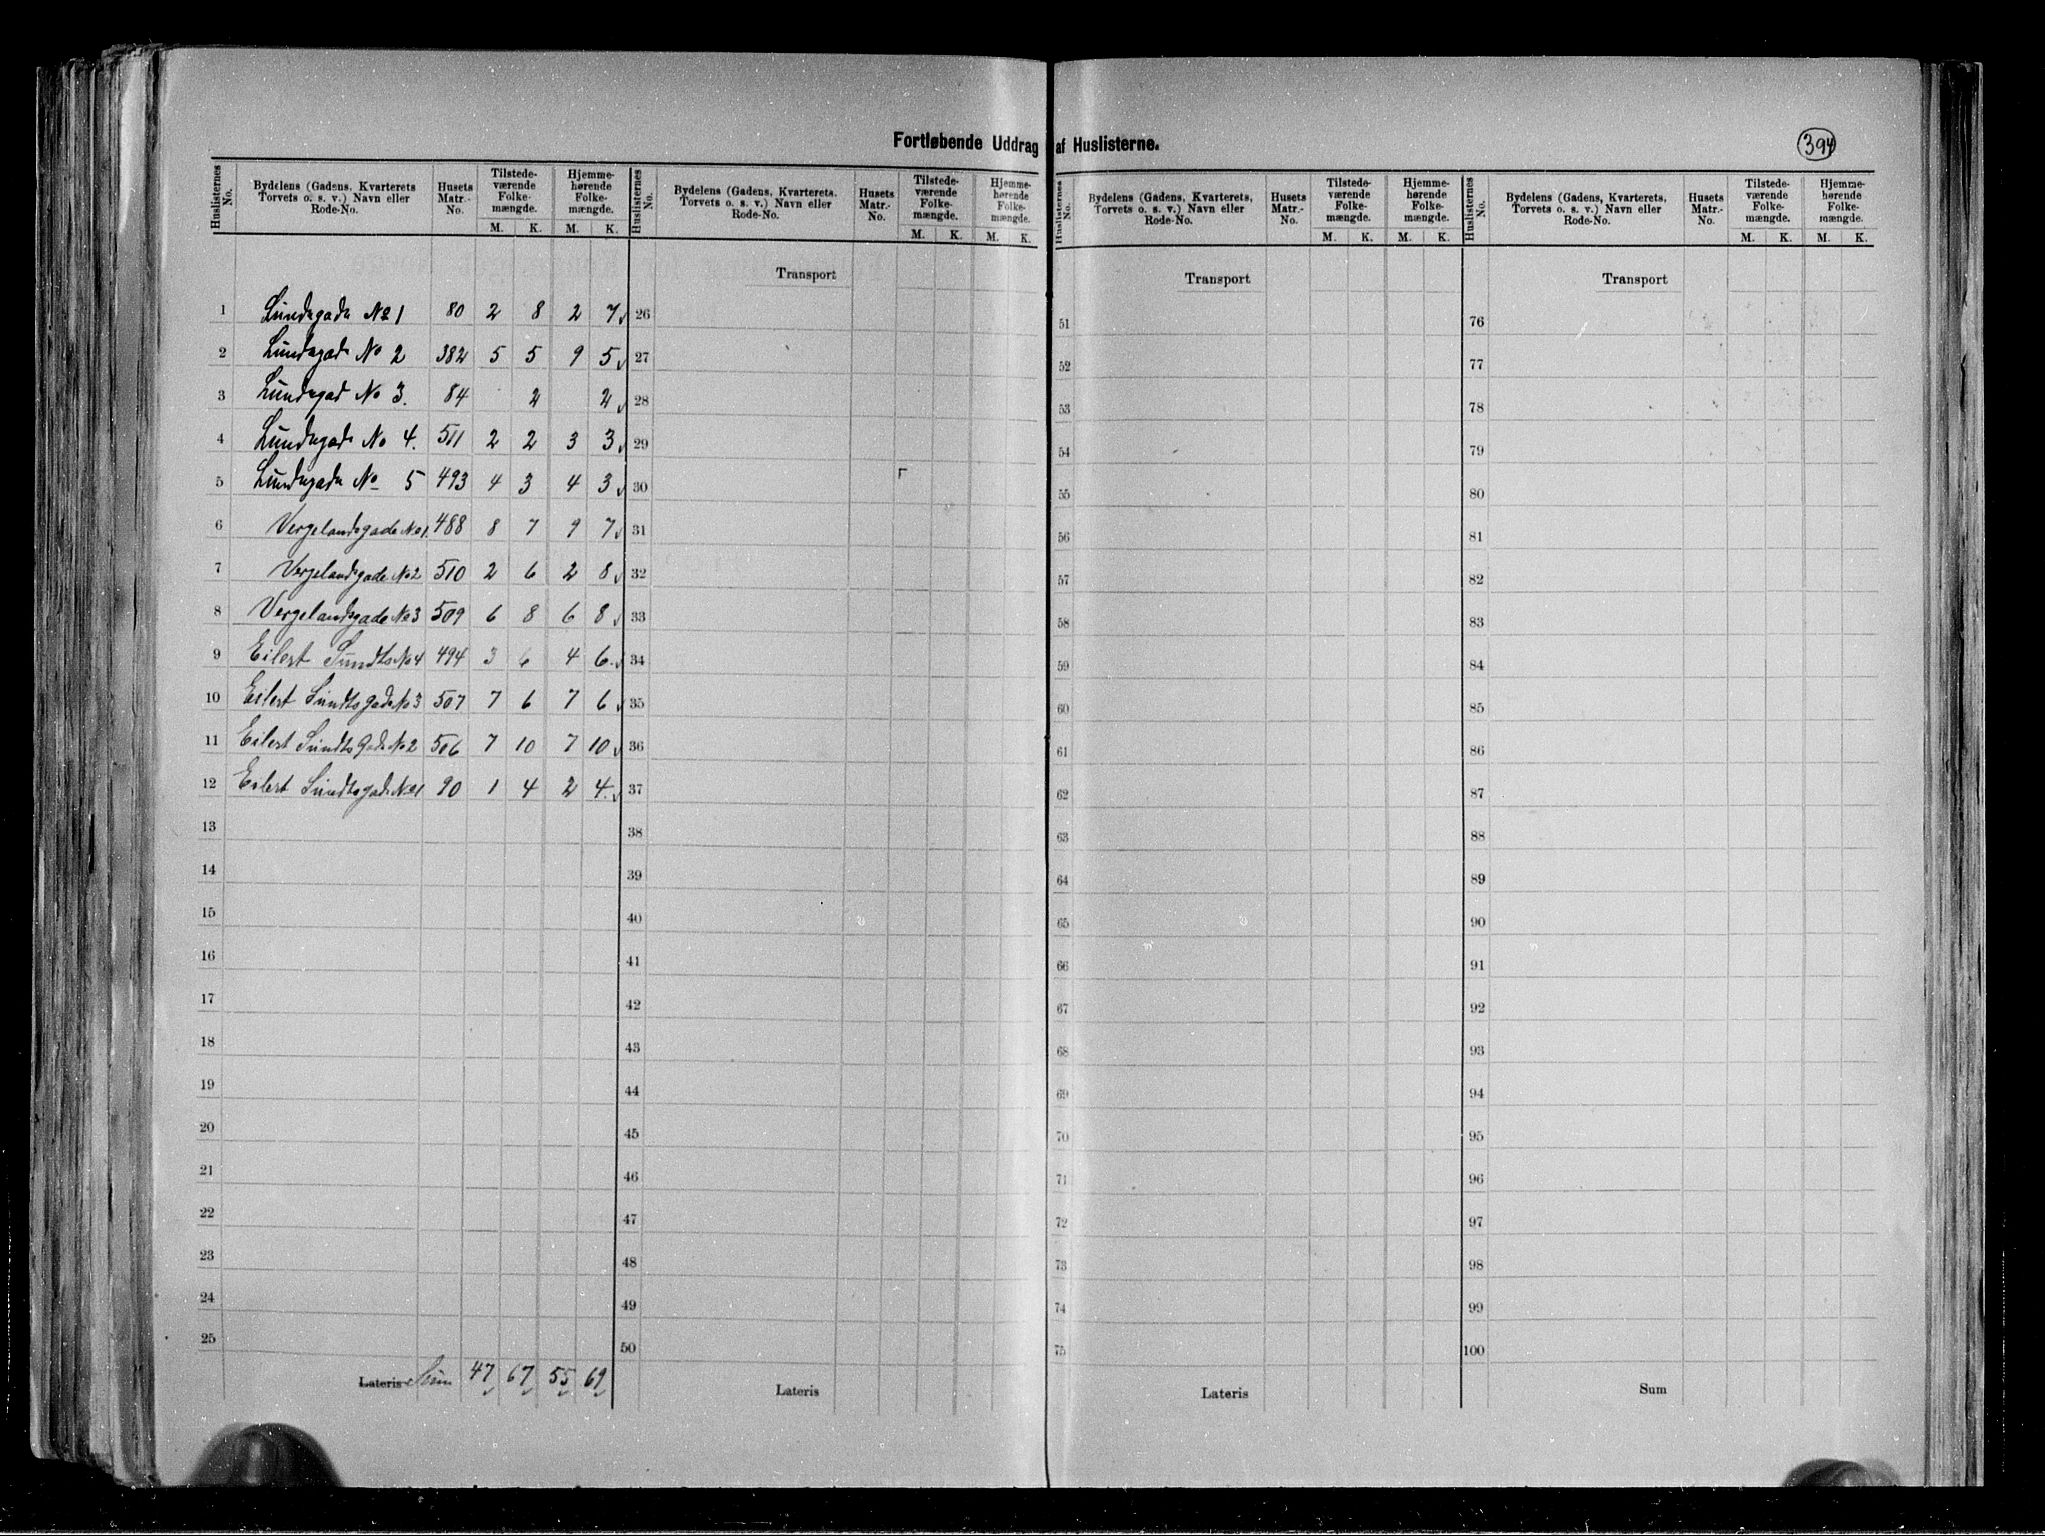 Fortløbende Uddrag af Huslisterne.
394
Huslisternes No. | Bydelens (Gadens, Kvarterets Torvets o. s. v.) Navn eller Rode-No. | Husets Matr.-No. | Tilstedeværende Folkemængde. M. K. | Hjemmehørende Folkemængde. M. K.
1 Lundegade No 1 80 2 8 2 7
2 Lundegade No 2 382 5 5 9 5
3 Lundegad No 3. 84 2 2
4 Lundegade No 4. 511 2 2 3 3
5 Lundegade No 5 493 4 3 4 3
6 Vergelandsgade No 1. 488 8 7 9 7
7 Vergelandsgade No 2 510 2 6 2 8
8 Vergelandsgade No 3 509 6 8 6 8
9 Eilert Sundts No 4 494 3 6 4 6
10 Eilert Sundts gade No 3 507 7 6 7 6
11 Eilert Sundts gade No 2 506 7 10 7 10
12 Eilert Sundts gade No 1 90 1 4 2 4
13
14
15
16
17
18
19
20
21
22
23
24
25
Lateris Sum 47 67 55 69
Huslisternes No. | Bydelens (Gadens, Kvarterets, Torvets o. s. v.) Navn eller Rode-No. | Husets Matr.-No. | Tilstedeværende Folkemængde. M. K. | Hjemmehørende Folkemængde. M. K.
Transport
26
27
28
29
30
31
32
33
34
35
36
37
38
39
40
41
42
43
44
45
46
47
48
49
50
Lateris
Huslisternes No. | Bydelens (Gadens, Kvarterets, Torvets o. s. v.) Navn eller Rode-No. | Husets Matr.-No. | Tilstedeværende Folkemængde. M. K. | Hjemmehørende Folkemængde. M. K.
Transport
51
52
53
54
55
56
57
58
59
60
61
62
63
64
65
66
67
68
69
70
71
72
73
74
75
Lateris
Huslisternes No. | Bydelens (Gadens, Kvarterets, Torvets o. s. v.) Navn eller Rode-No. | Husets Matr.-No. | Tilstedeværende Folkemængde. M. K. | Hjemmehørende Folkemængde. M. K.
Transport
76
77
78
79
80
81
82
83
84
85
86
87
88
89
90
91
92
93
94
95
96
97
98
99
100
Sum